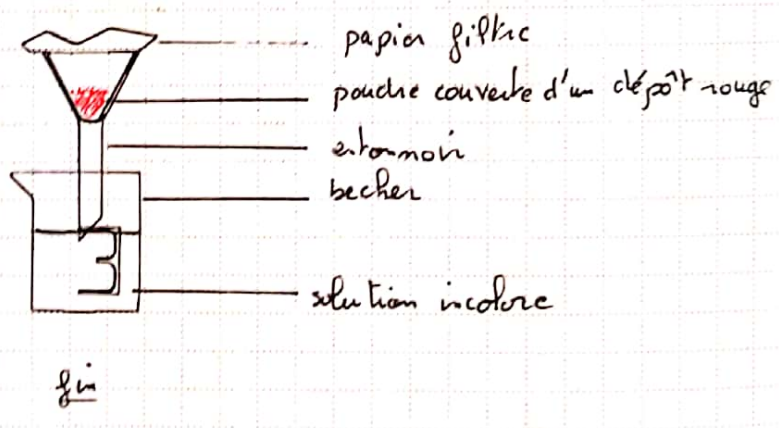 papier filtre
poudre couverte d'un dépôt rouge
entonnoir
becher
3
solution incolore
fin